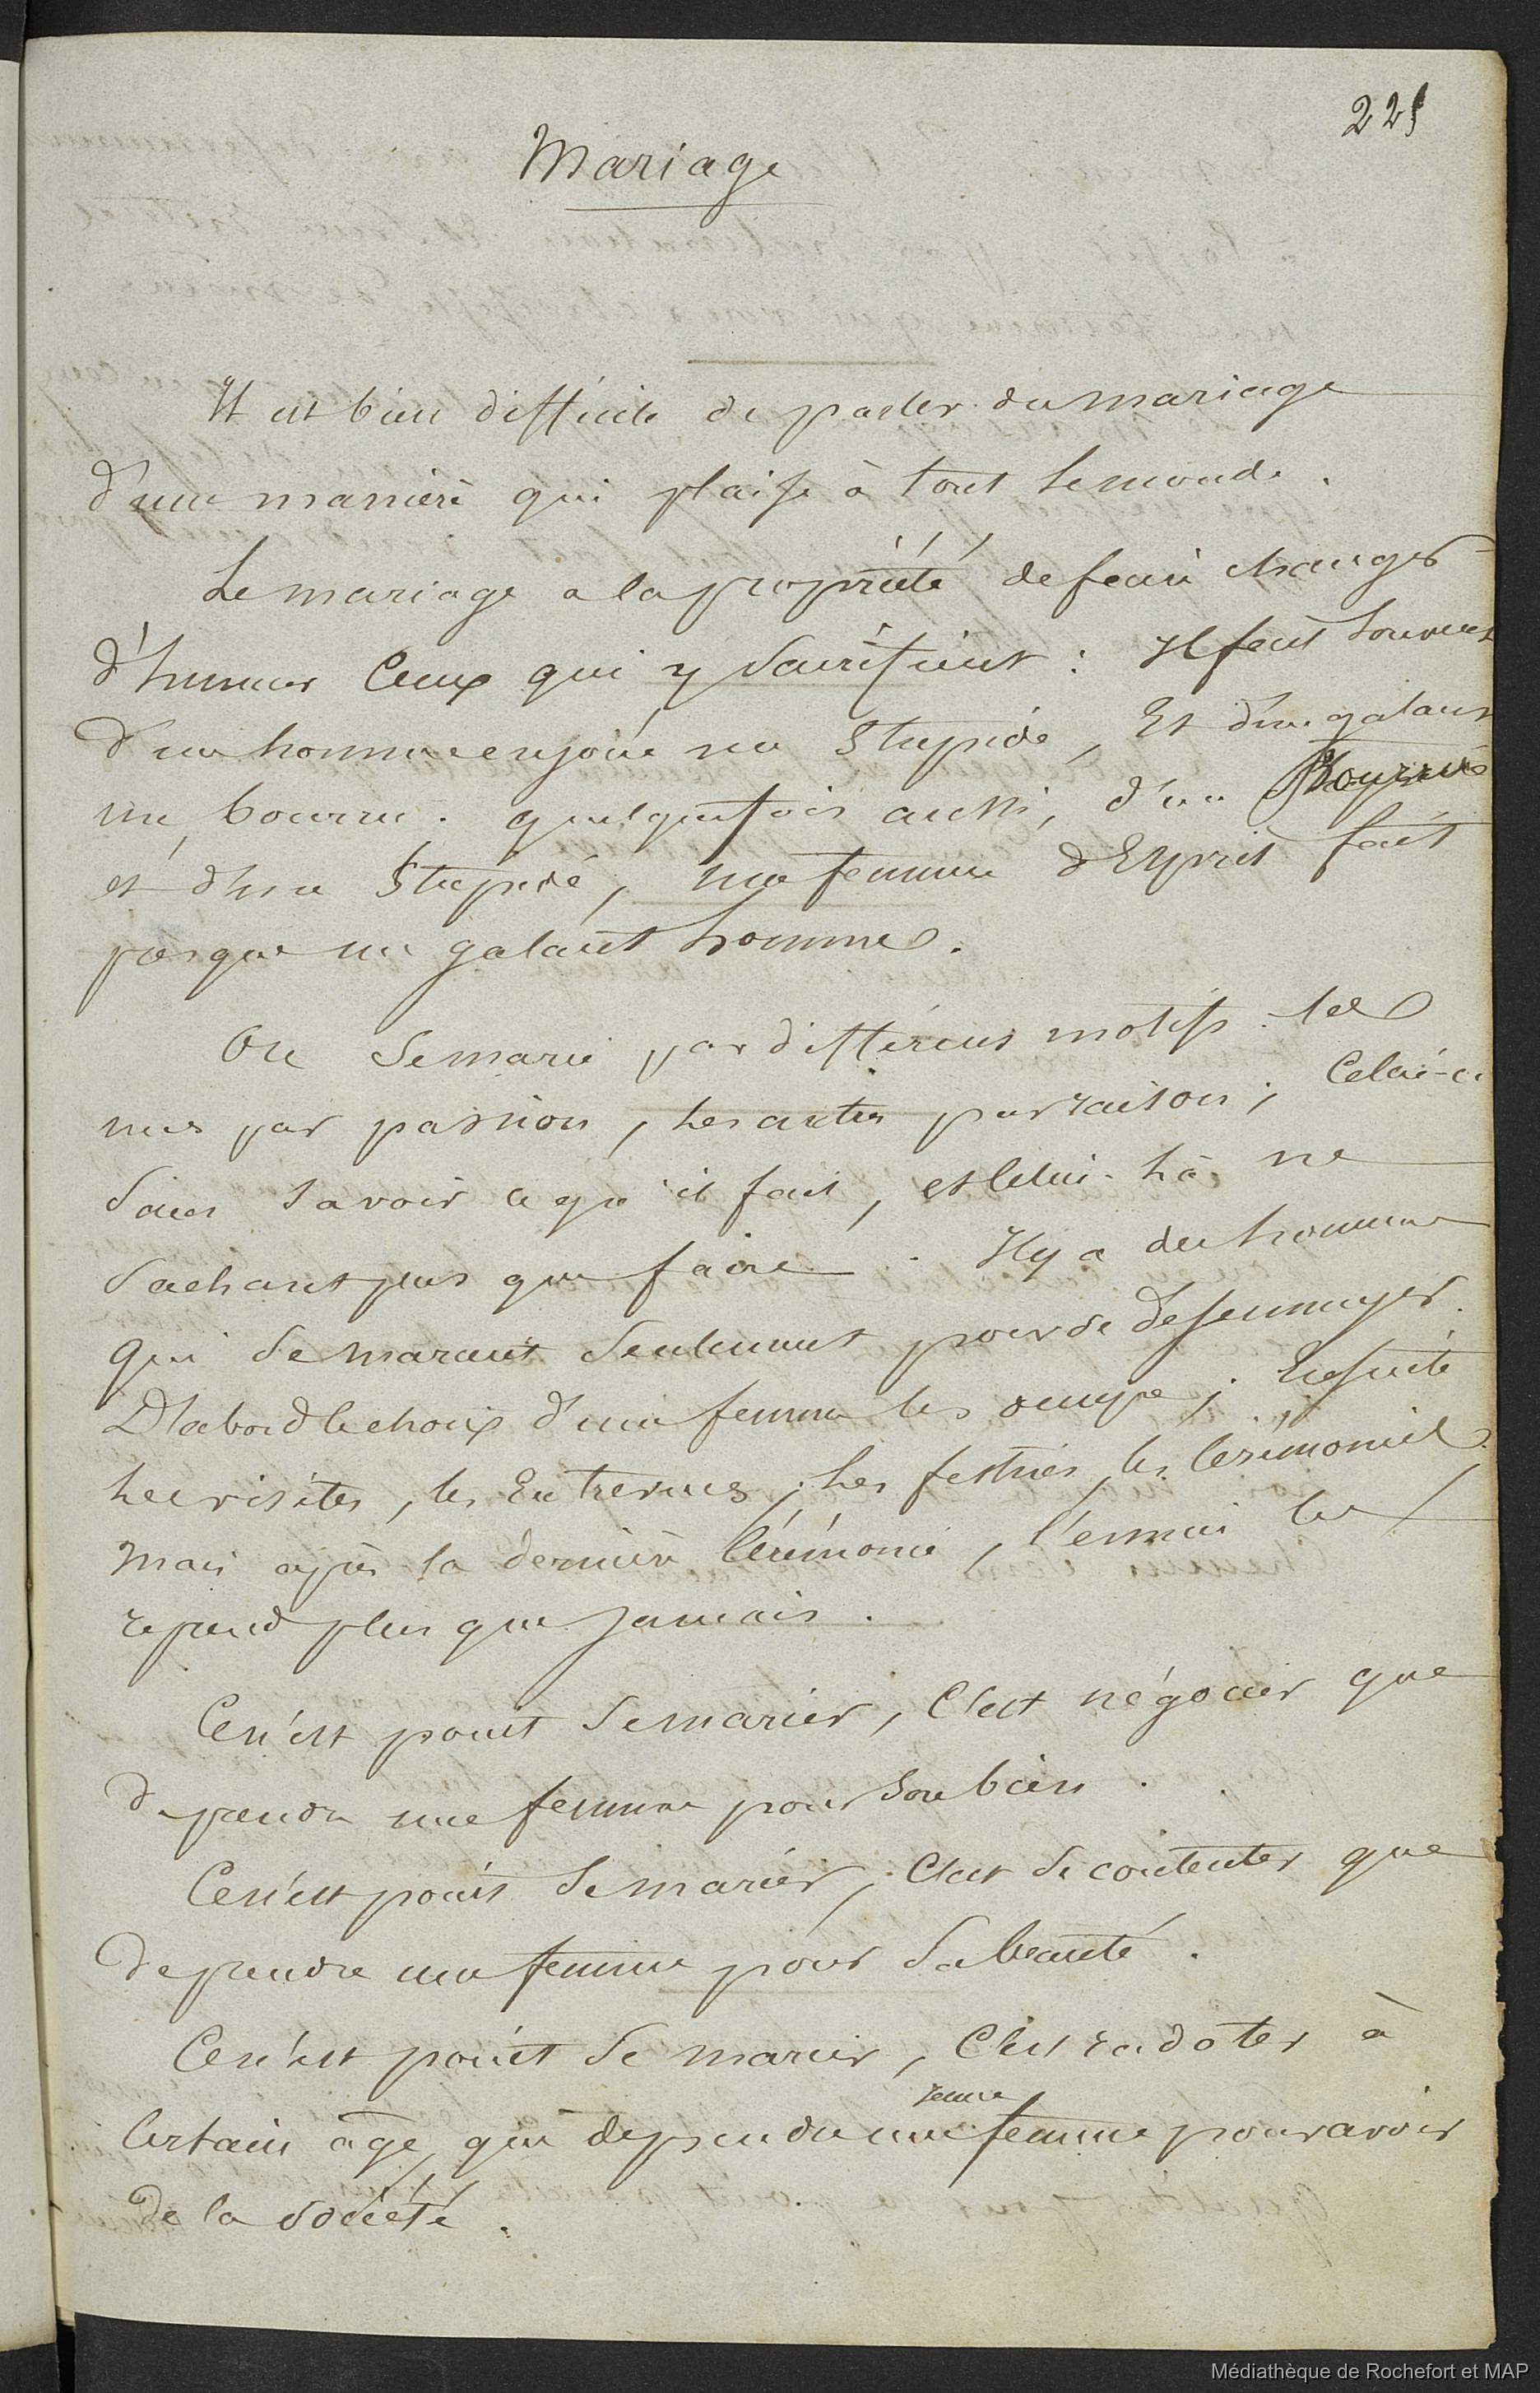 225
Mariage
Il est bien difficile de parler du mariage
d'une manière qui plaise à tout le monde.
Le mariage a la propriété de faire changer
d'humeur Ceux qui y Sacrifient : Il fait Souvent
d'un homme enjoué un Stupide, Et d'un galant
un bourru. quelquefois aussi, d'un Bourru
et d'un Stupide, une femme d'Esprit fait
presque un galant homme.
On Se marie par différens motifs : les
uns par passion, les autres par raison ; Celui-ci
Sans Savoir ce qu'il fait, et Celui-là ne
Sachant plus que faire. Il y a des hommes
qui Se marient Seulement pour se désennuyer.
D'abord le choix d'une femme les occupe ; Ensuite
les visites, les Entrevues, les festins, les Cérémonies
mais après la dernière Cérémonie, l'ennui les
reprend plus que Jamais.
Ce n'est point Se marier, C'est négocier que
de prendre une femme pour Son bien.
Ce n'est point Se marier, C'est Se contenter que
de prendre une femme pour Sa beauté.
Ce n'est point Se marier, C'est radoter à
Certain âge, que de prendre une jeune femme pour avoir
de la Société.
Médiathèque de Rochefort et MAP